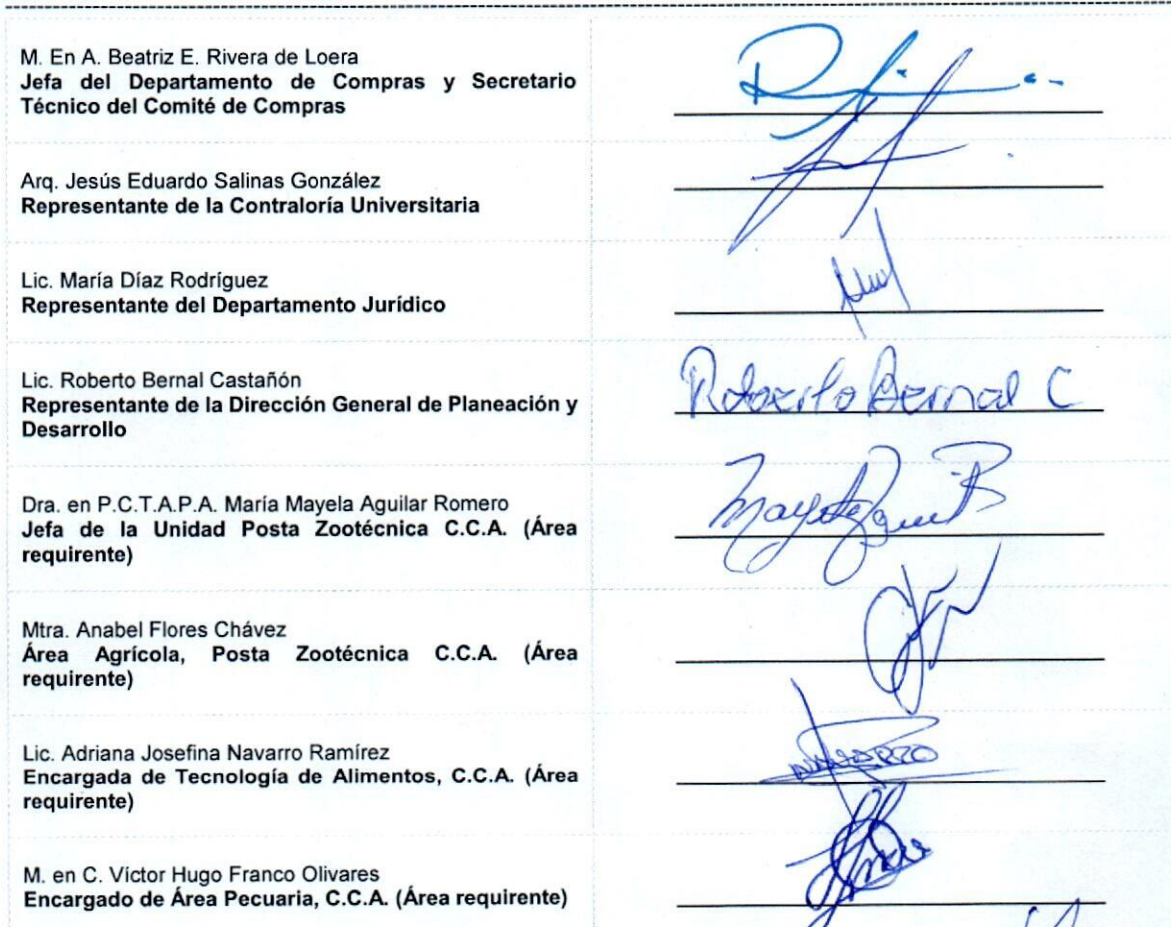 M. En A. Beatriz E. Rivera de Loera
Jefa del Departamento de Compras y Secretario
Técnico del Comité de Compras
Arq. Jesús Eduardo Salinas González
Representante de la Contraloría Universitaria
Lic. María Díaz Rodríguez
Representante del Departamento Jurídico
Lic. Roberto Bernal Castañón
Representante de la Dirección General de Planeación y
Desarrollo
Roberto Bernal C
Dra. en P.C.T.A.P.A. María Mayela Aguilar Romero
Jefa de la Unidad Posta Zootécnica C.C.A. (Área
requirente)
Mtra. Anabel Flores Chávez
Área Agrícola, Posta Zootécnica C.C.A. (Área
requirente)
Lic. Adriana Josefina Navarro Ramírez
Encargada de Tecnología de Alimentos, C.C.A. (Área
requirente)
NAVARRO
M. en C. Víctor Hugo Franco Olivares
Encargado de Área Pecuaria, C.C.A. (Área requirente)